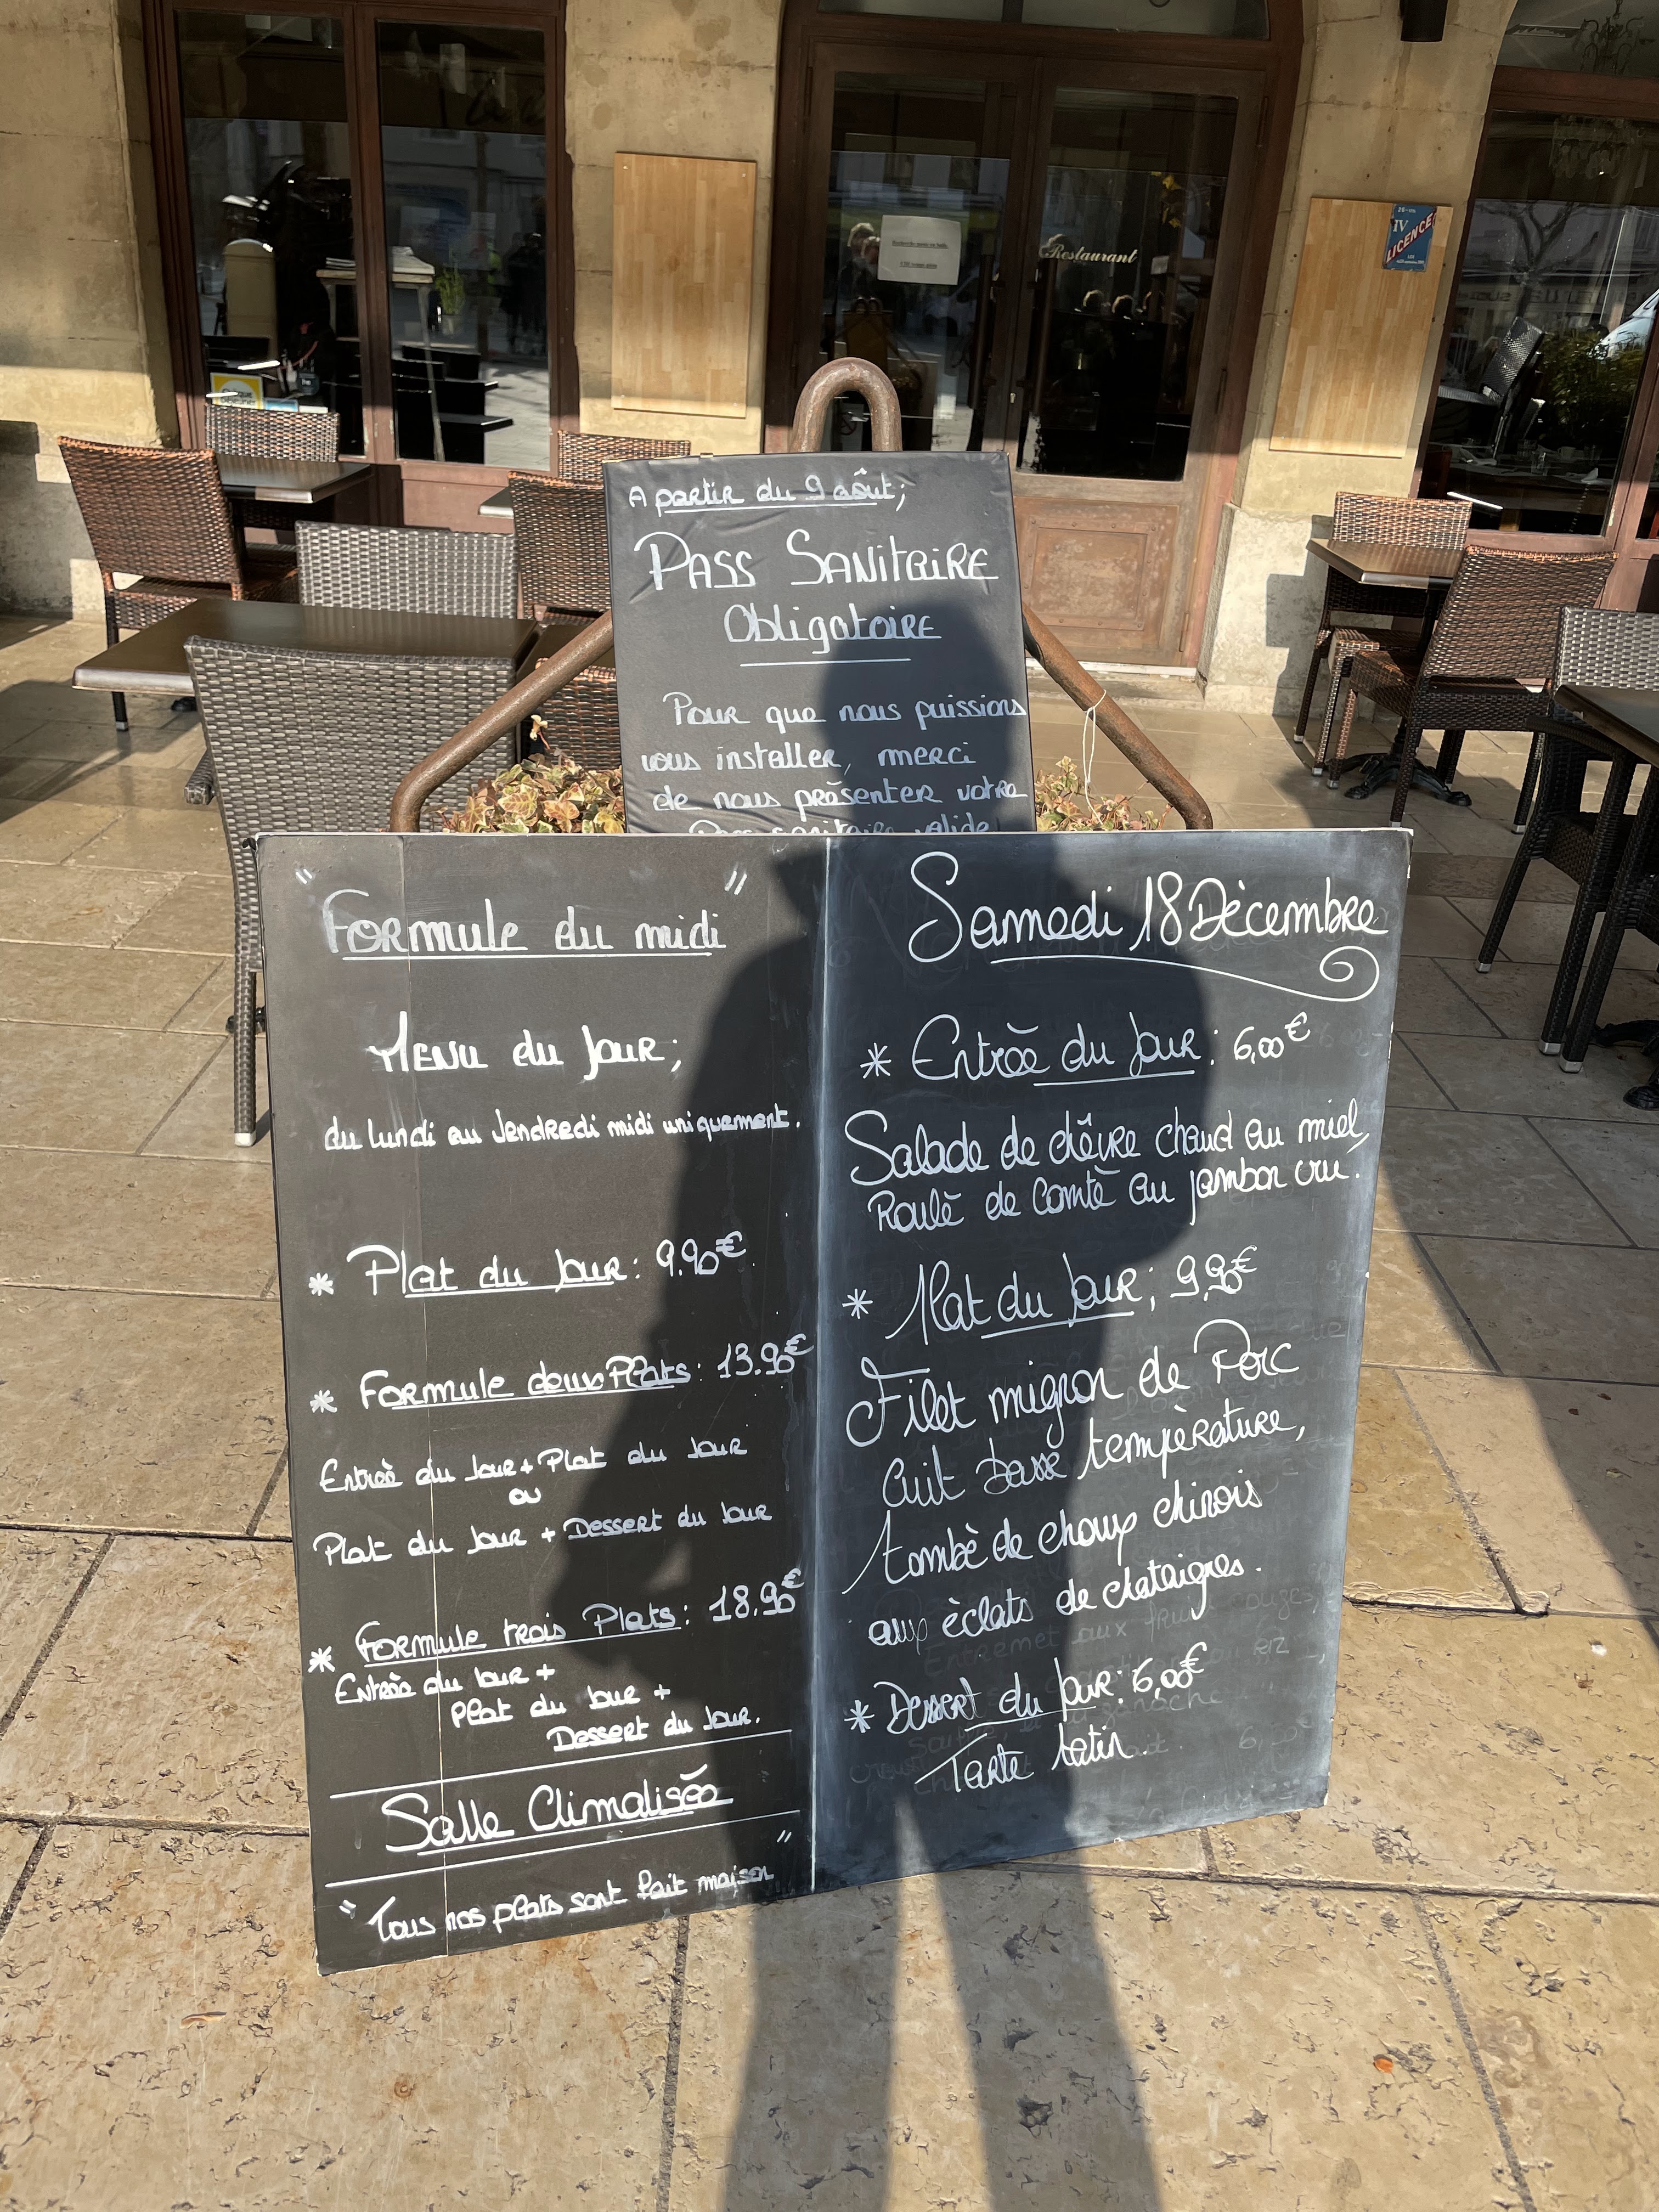 Restaurant
IV
LICENCE
A partir du 9 août;
PASS SANITAIRE
Obligatoire
Pour que nous puissions
vous installer, merci
de nous présenter votre
Pass sanitaire valide
" "
Formule du midi
Menu du Jour;
du lundi au Vendredi midi uniquement.
* Plat du Jour: 9.90€
* Formule deux Plats: 13.90€
Entrée du Jour + Plat du Jour
ou
Plat du Jour + Dessert du Jour
* Formule trois Plats: 18.90€
Entrée du Jour +
Plat du Jour +
Dessert du Jour.
Salle Climatisée
" Tous nos plats sont fait maison "
Samedi 18 Décembre
* Entrée du Jour: 6,00€
Salade de chêvre chaud au miel,
Roulé de Comté au jambon cru.
* Plat du Jour; 9,90€
Filet mignon de Porc
cuit basse température,
tombé de choux chinois
aux éclats de chataignes.
* Dessert du Jour: 6,00€
Tarte tatin.